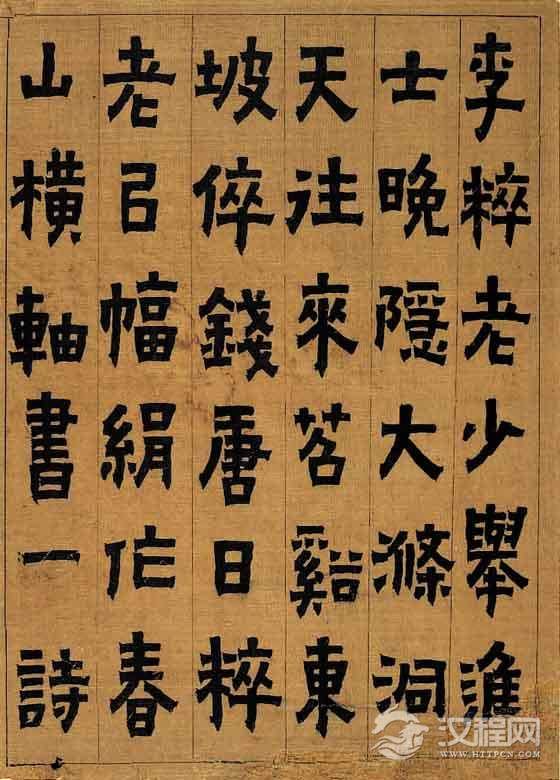 李粹老少舉進
士晚隱大滌洞
天往來苕谿東
坡倅錢唐日粹
老㠯幅絹作春
山橫軸書一詩
汉程网
WWW.HTTPCN.COM